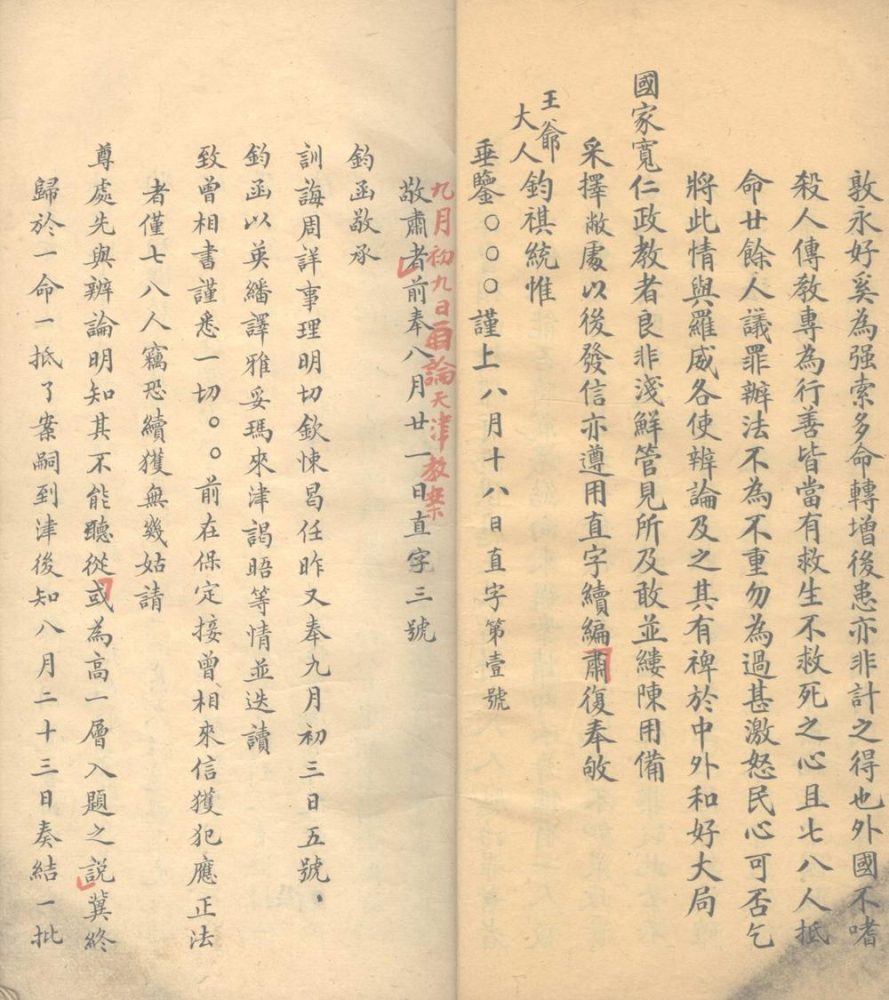 敦永好奚為强索多命轉增後患亦非計之得也外國不嗜
殺人傳教專為行善皆當有救生不救死之心且七八人抵
命廿餘人議罪辦法不為不重勿為過甚激怒民心可否乞
將此情與羅威各使辨論及之其有裨於中外和好大局
國家寬仁政教者良非淺鮮管見所及敢並縷陳用備
采擇敝處以後發信亦遵用直字續編肅復奉敂
王爺
大人鈞祺統惟
垂鑒○○○謹上八月十八日直字第壹號
九月初九日再論天津教案
敬肅者前奉八月廿一日直字三號
鈞函敬承
訓誨周詳事理明切欽悚曷任昨又奉九月初三日五號、
鈞函以英繙譯雅妥瑪來津謁晤等情並迭讀
致曾相書謹悉一切○○前在保定接曾相來信獲犯應正法
者僅七八人竊恐續獲無幾姑請
尊處先與辨論明知其不能聽從或為高一層入題之說冀終
歸於一命一抵了案嗣到津後知八月二十三日奏結一批